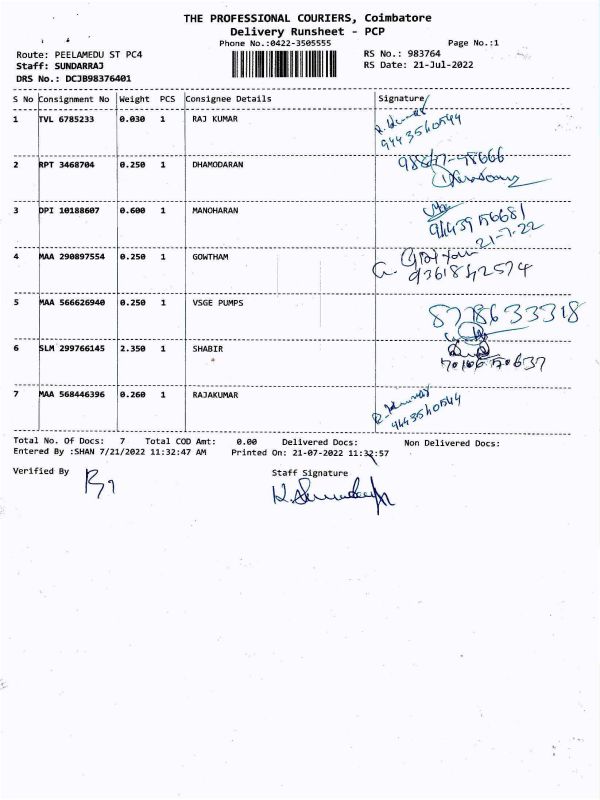 THE PROFESSIONAL COURIERS, Coimbatore
Delivery Runsheet - PCP
Phone No.:0422-3505555 Page No.:1
Route: PEELAMEDU ST PC4 RS No.: 983764
Staff: SUNDARRAJ RS Date: 21-Jul-2022
DRS No.: DCJB98376401
S No Consignment No Weight PCS Consignee Details Signature
1 TVL 6785233 0.030 1 RAJ KUMAR
9443540544
2 RPT 3468704 0.250 1 DHAMODARAN
3 DPI 10188607 0.600 1 MANOHARAN
21-7-22
4 MAA 290897554 0.250 1 GOWTHAM
9361842574
5 MAA 566626940 0.250 1 VSGE PUMPS
8778633318
6 SLM 299766145 2.350 1 SHABIR
7 MAA 568446396 0.260 1 RAJAKUMAR
9443540544
Total No. Of Docs: 7 Total COD Amt: 0.00 Delivered Docs: Non Delivered Docs:
Entered By :SHAN 7/21/2022 11:32:47 AM Printed On: 21-07-2022 11:32:57
Verified By Staff Signature